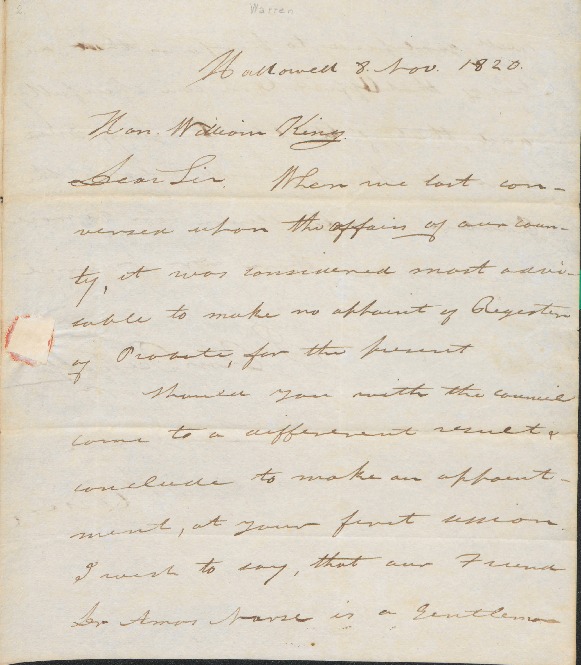 2.
Warren
Hallowell 8. Nov. 1820.
Hon. William King.
Dear Sir. When we last con-
versed upon the affairs of our coun-
ty, it was considered most advi-
sable to make no appoint of Register
of Probate, for the present
Should you with the council
come to a different result &
conclude to make an appoint-
ment, at your first session.
I wish to say, that our Friend
Dr Amos Nourse is a Gentleman